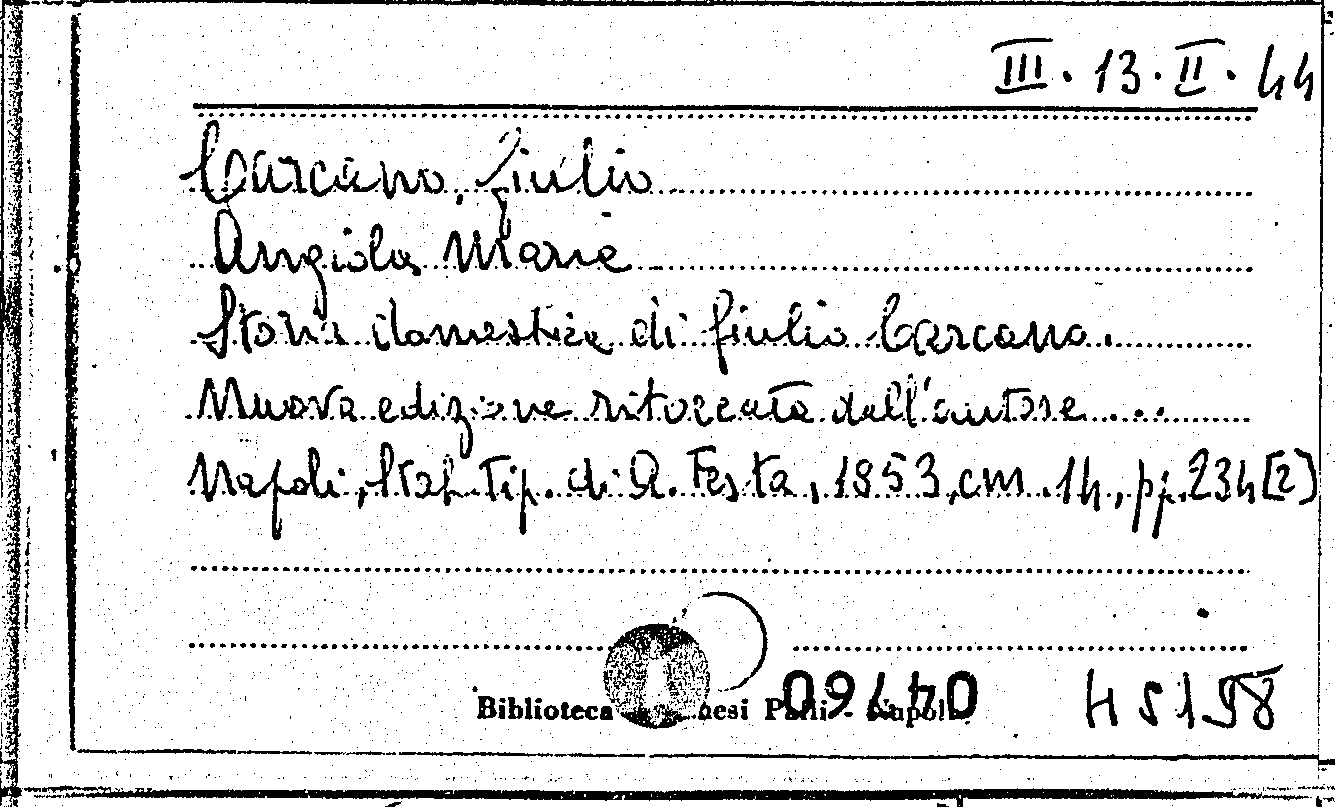 III. 13. II. 44
Carcano, Giulio
Angiola Maria
Storia domestica di Giulio Carcano.
Nuova edizione ritoccata dall'autore ...
Napoli, Stab. Tip. di A. Festa, 1853, cm. 14, pp. 234 [2]
Biblioteca Napoli
45198